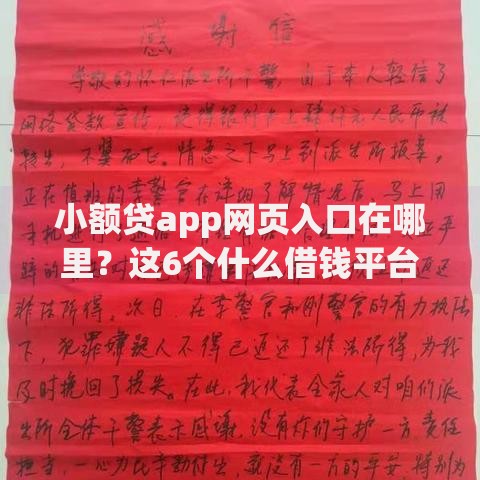 感谢信
尊敬的怀仁派出所干警，由于本人轻信了
网络贷款宣传，使得银行卡上肆仟元人民币被
转走，不翼而飞。情急之下马上到派出所报案，
正在值班的李警官在详细了解情况后，马上用
小额贷app网页入口在哪
里？这6个什么借钱平台
非法所得。次日，在李警官和刚警官的有力执法
下，犯罪嫌疑人不得已返还了非法所得，为我
及时挽回了损失。在此，我代表全家人对咱们派
出所全体干警表示感谢，没有你们守护一方，责任
担当，一心为民辛勤付出，就没有一方的平安，特别为